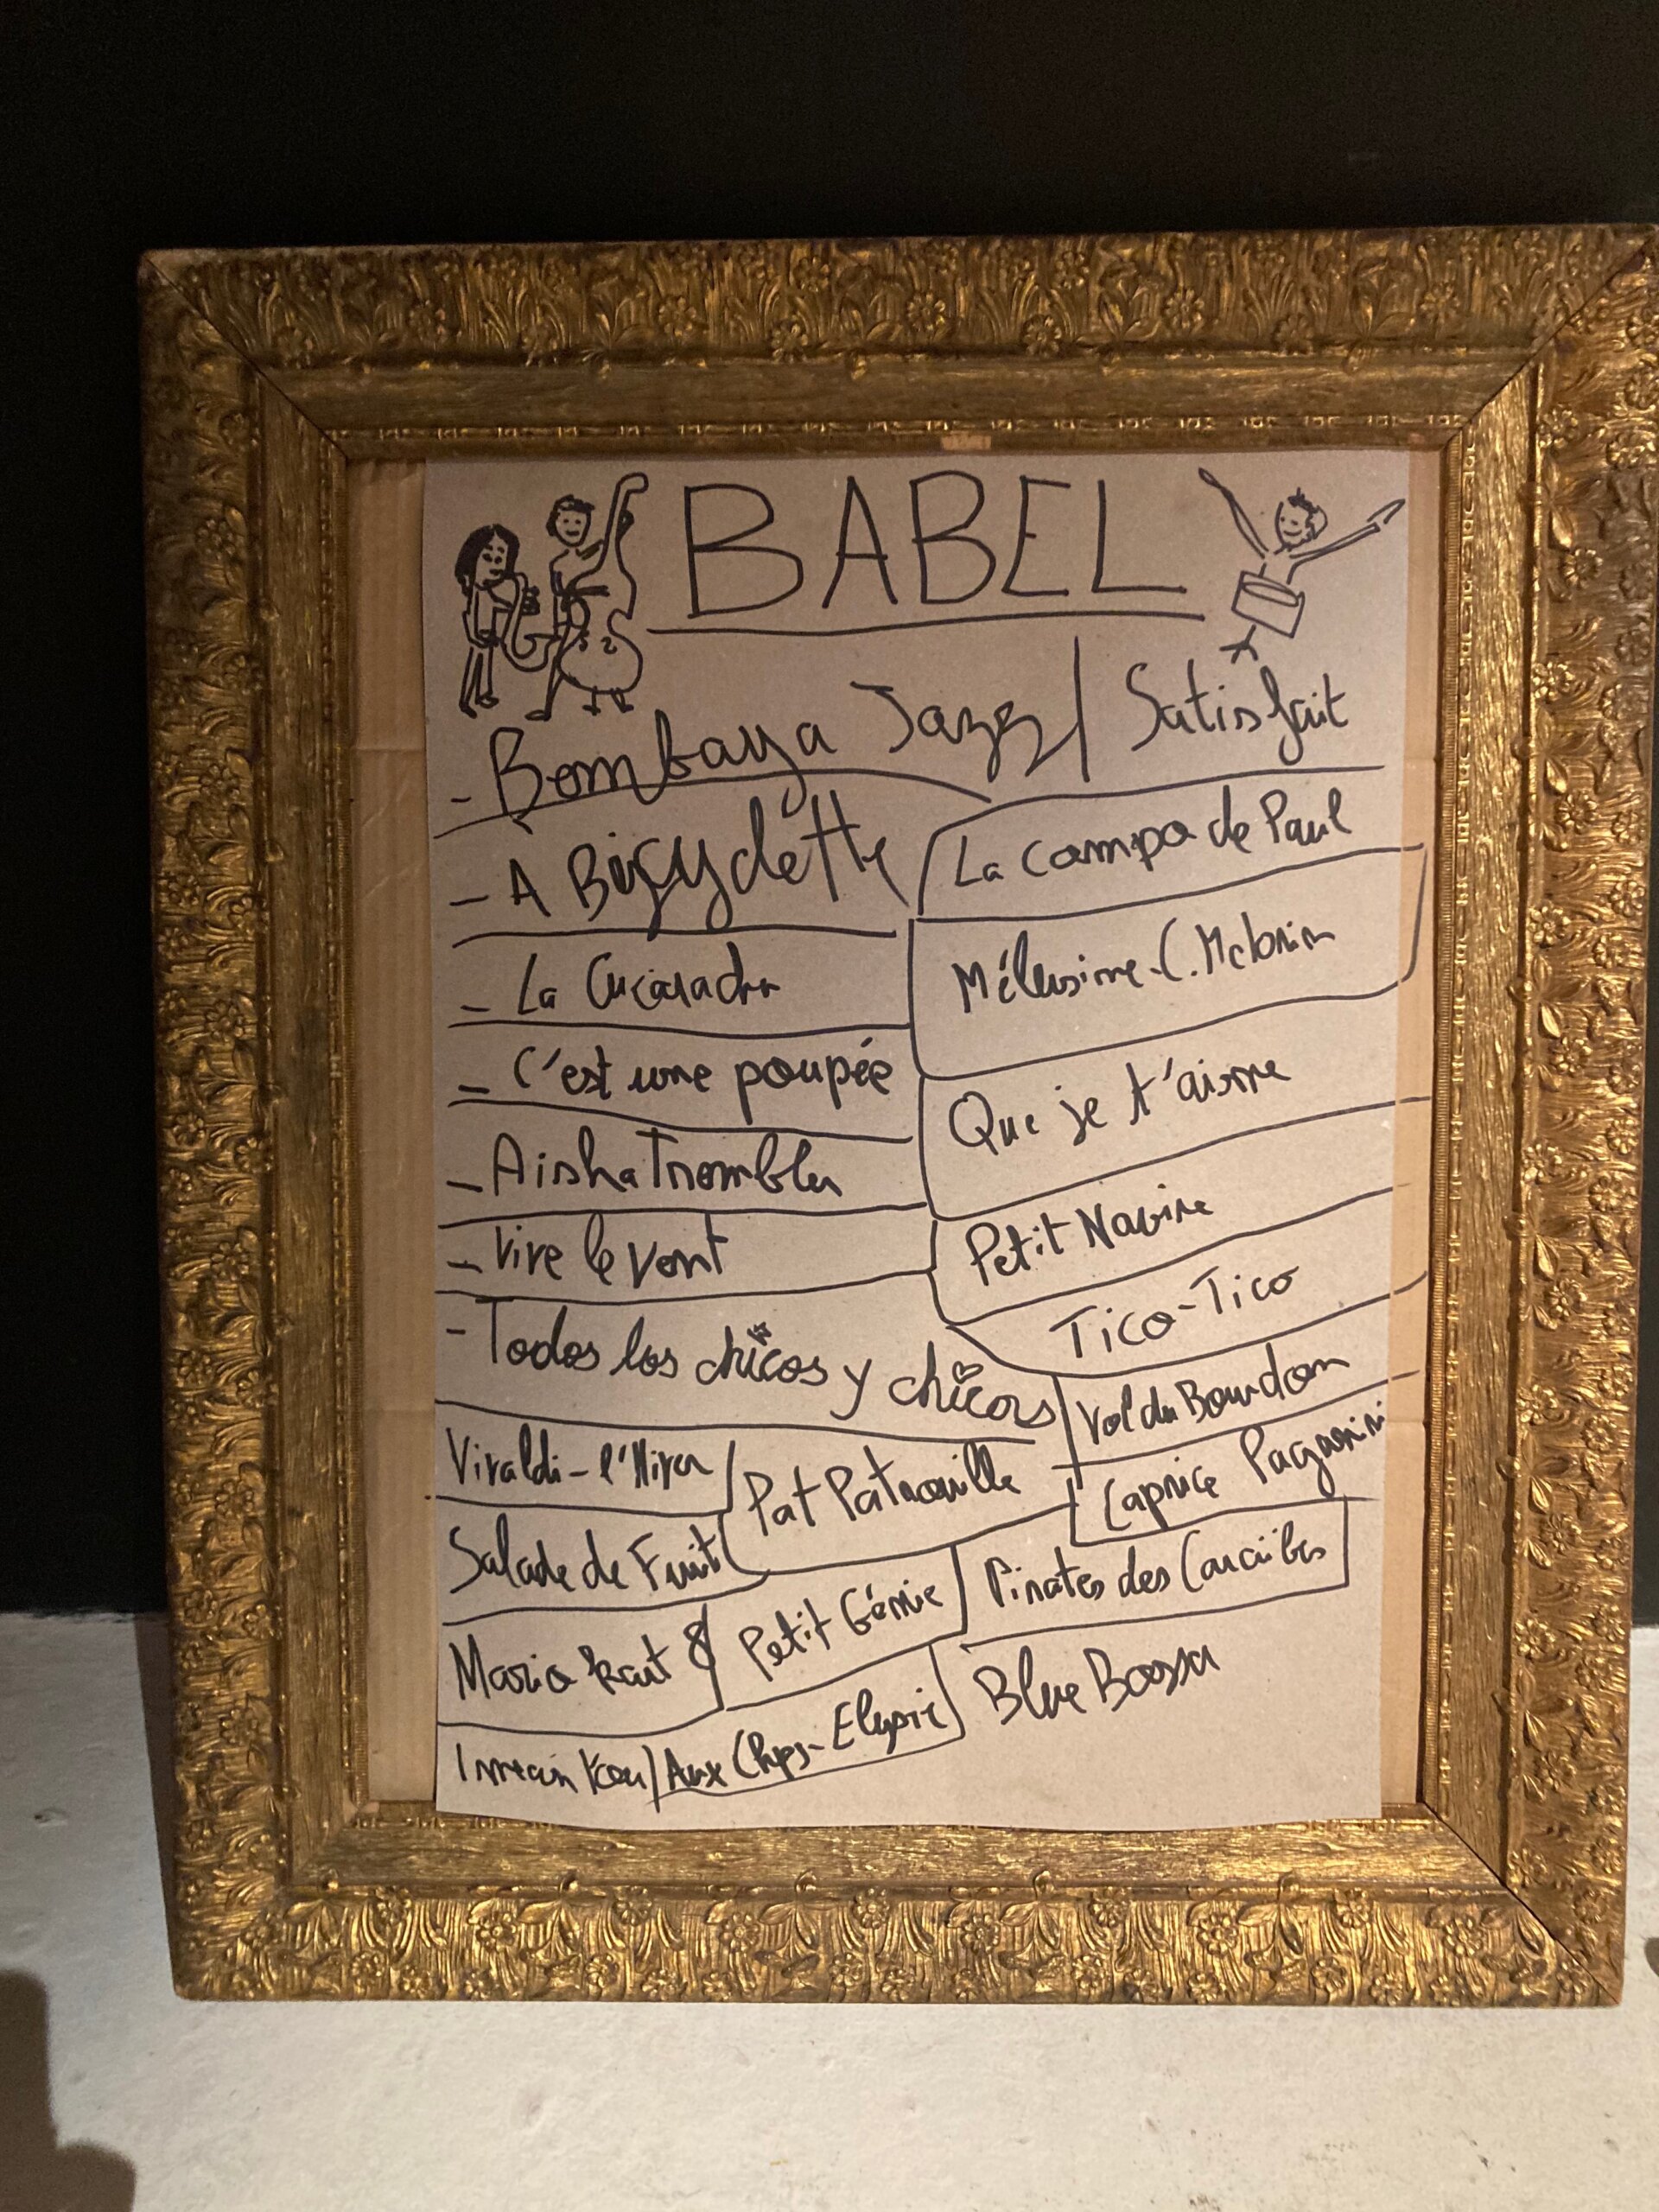 BABEL
- Bombaya Jazz / Satisfait
- À Bicyclette
La Campa de Paul
- La Cucaracha
Mélusine - C.
- C'est une poupée
Que je t'aime
- Aisha Trembler
Petit Navire
- Vive le vent
Tico-Tico
- Todos los chicos y chicas
Vol du Bourdon
Vivaldi - l'Hiver
Pat Patrouille
Caprice Paganini
Salade de Fruit
Petit Génie
Pirates des Caraïbes
Mario kart 8
Blue Bossa
Aux Chps-Elysée